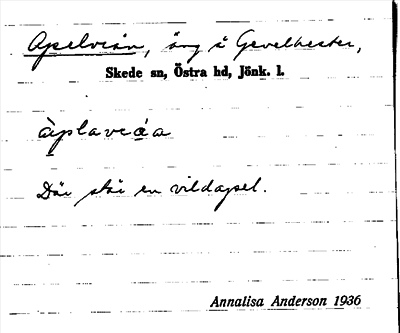 Apelvrån, äng i Gevelhester,
Skede sn, Östra hd, Jönk. l.
àplavráa
Där står en vildapel.
Annalisa Anderson 1936